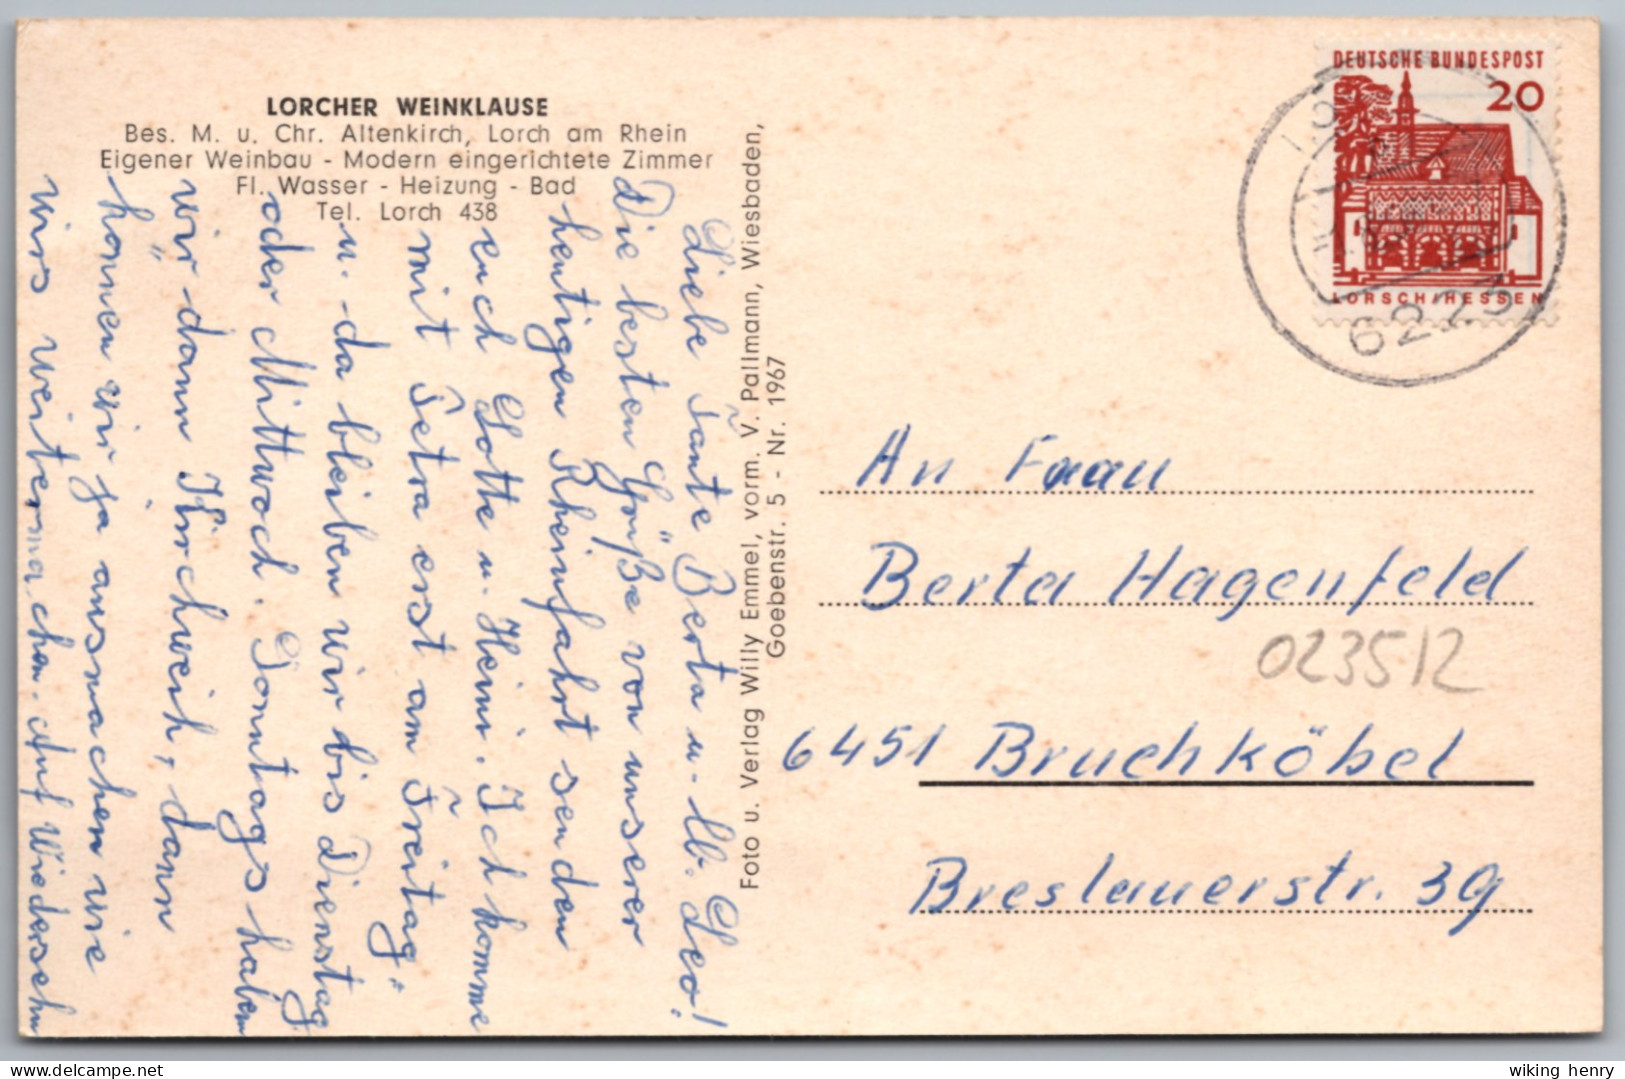 LORCHER WEINKLAUSE
Bes. M. u. Chr. Altenkirch, Lorch am Rhein
Eigener Weinbau - Modern eingerichtete Zimmer
Fl. Wasser - Heizung - Bad
Tel. Lorch 438
Liebe Tante Berta u. lb. Leo!
Die besten Grüße von unserer
heutigen Rheinfahrt senden
euch Lotte u. Heini. Ich komme
mit Petra erst am Freitag
u. da bleiben wir bis Dienstag
oder Mittwoch. Sonntags haben
wir dann Kirchweih, dann
können wir ja ausmachen wie
wirs weitermachen. Auf Wiedersehn
Foto u. Verlag Willy Emmel, vorm. V. Pallmann, Wiesbaden,
Goebenstr. 5 - Nr. 1967
DEUTSCHE BUNDESPOST
20
LORSCH/HESSEN
6223
An Frau
Berta Hagenfeld
023512
6451 Bruchköbel
Breslauerstr. 39
wiking henry